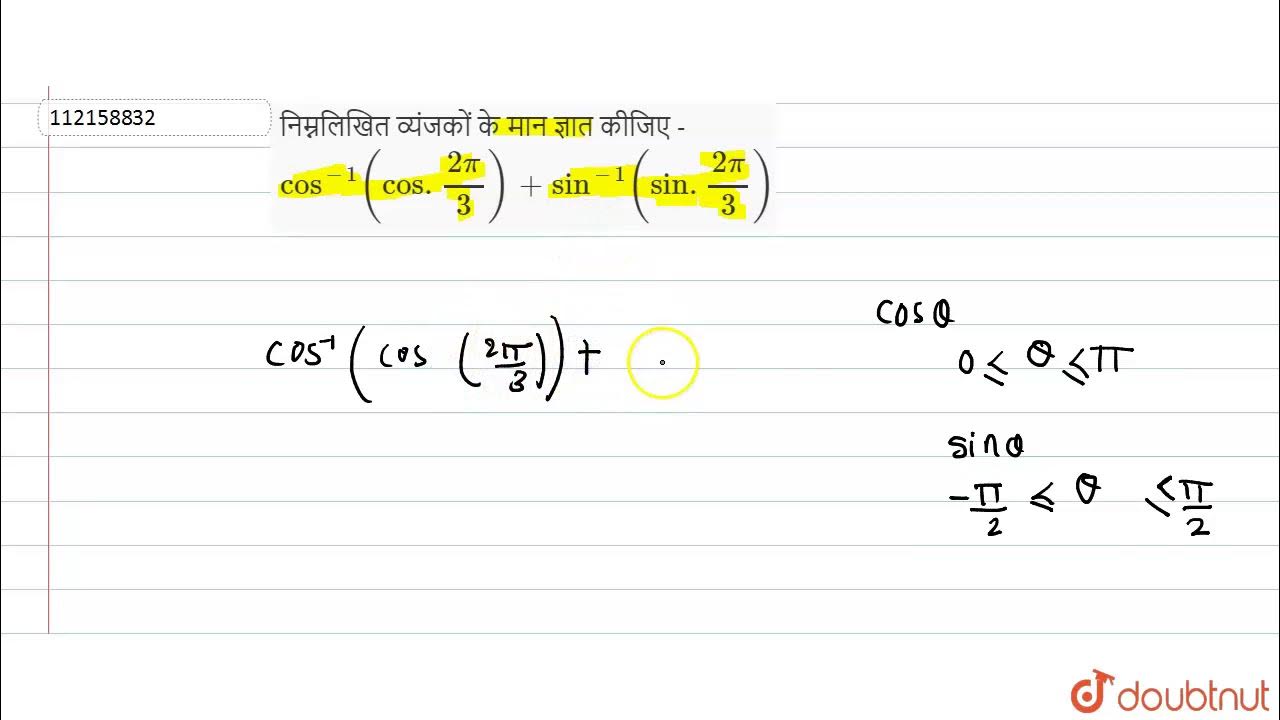 112158832
निम्नलिखित व्यंजकों के मान ज्ञात कीजिए -
cos⁻¹(cos. 2π/3) + sin⁻¹(sin. 2π/3)
cosθ
cos⁻¹(cos (2π/3)) +
0 ≤ θ ≤ π
sinθ
-π/2 ≤ θ ≤ π/2
doubtnut